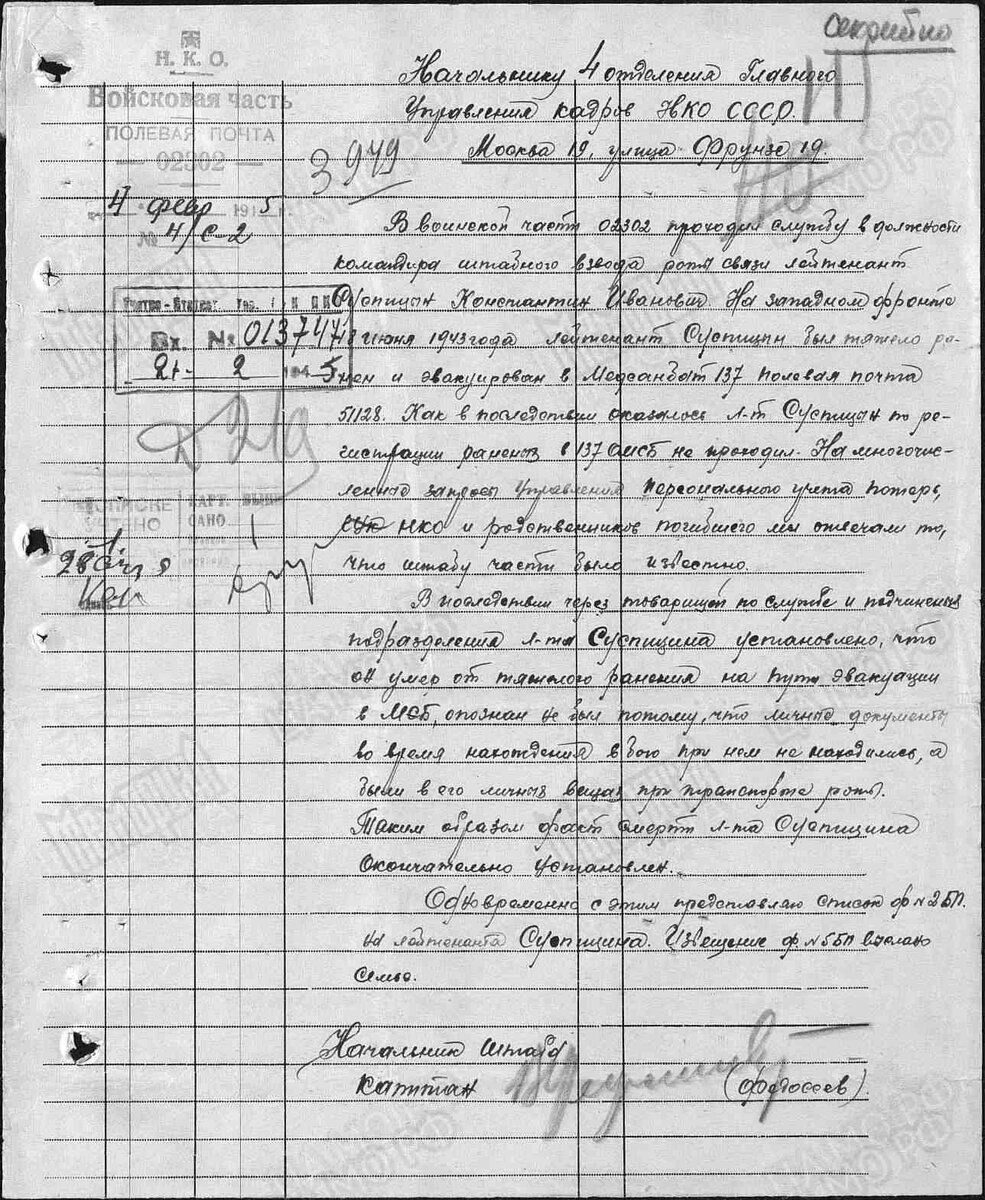 секретно
Н. К. О.
Войсковая часть
ПОЛЕВАЯ ПОЧТА
— 02302 —
4 февр 1945 г.
№ 4/с-2
3979
Начальнику 4 отделения Главного
Управления кадров НКО СССР.
Москва 19, улица Фрунзе 19.
Вх. № 013747
21 - 2 1945
В воинской части 02302 проходил службу в должности
командира штабного взвода роты связи лейтенант
Суспицын Константин Иванович. На западном фронте
18 июня 1943 года лейтенант Суспицын был тяжело ра-
нен и эвакуирован в Медсанбат 137 полевая почта
51128. Как в последствии оказалось л-т Суспицын по ре-
гистрации раненых в 137 ОМСБ не проходил. На многочис-
ленные запросы Управления персонального учета потерь,
НКО и родственников погибшего мы отвечали то,
что штабу части было известно.
В последствии через товарищей по службе и подчиненых
подразделения л-та Суспицина установлено, что
он умер от тяжелого ранения на пути эвакуации
в МСБ, опознан не был потому, что личные документы
во время нахождения в бою при нем не находились, а
были в его личных вещах при транспорте роты.
Таким образом факт смерти л-та Суспицина
окончательно установлен.
Одновременно с этим представляю список ф №2БП.
на лейтенанта Суспицина. Извещение ф №5БП выслано
семье.
КАРТ.
САНО
Начальник штаба
капитан